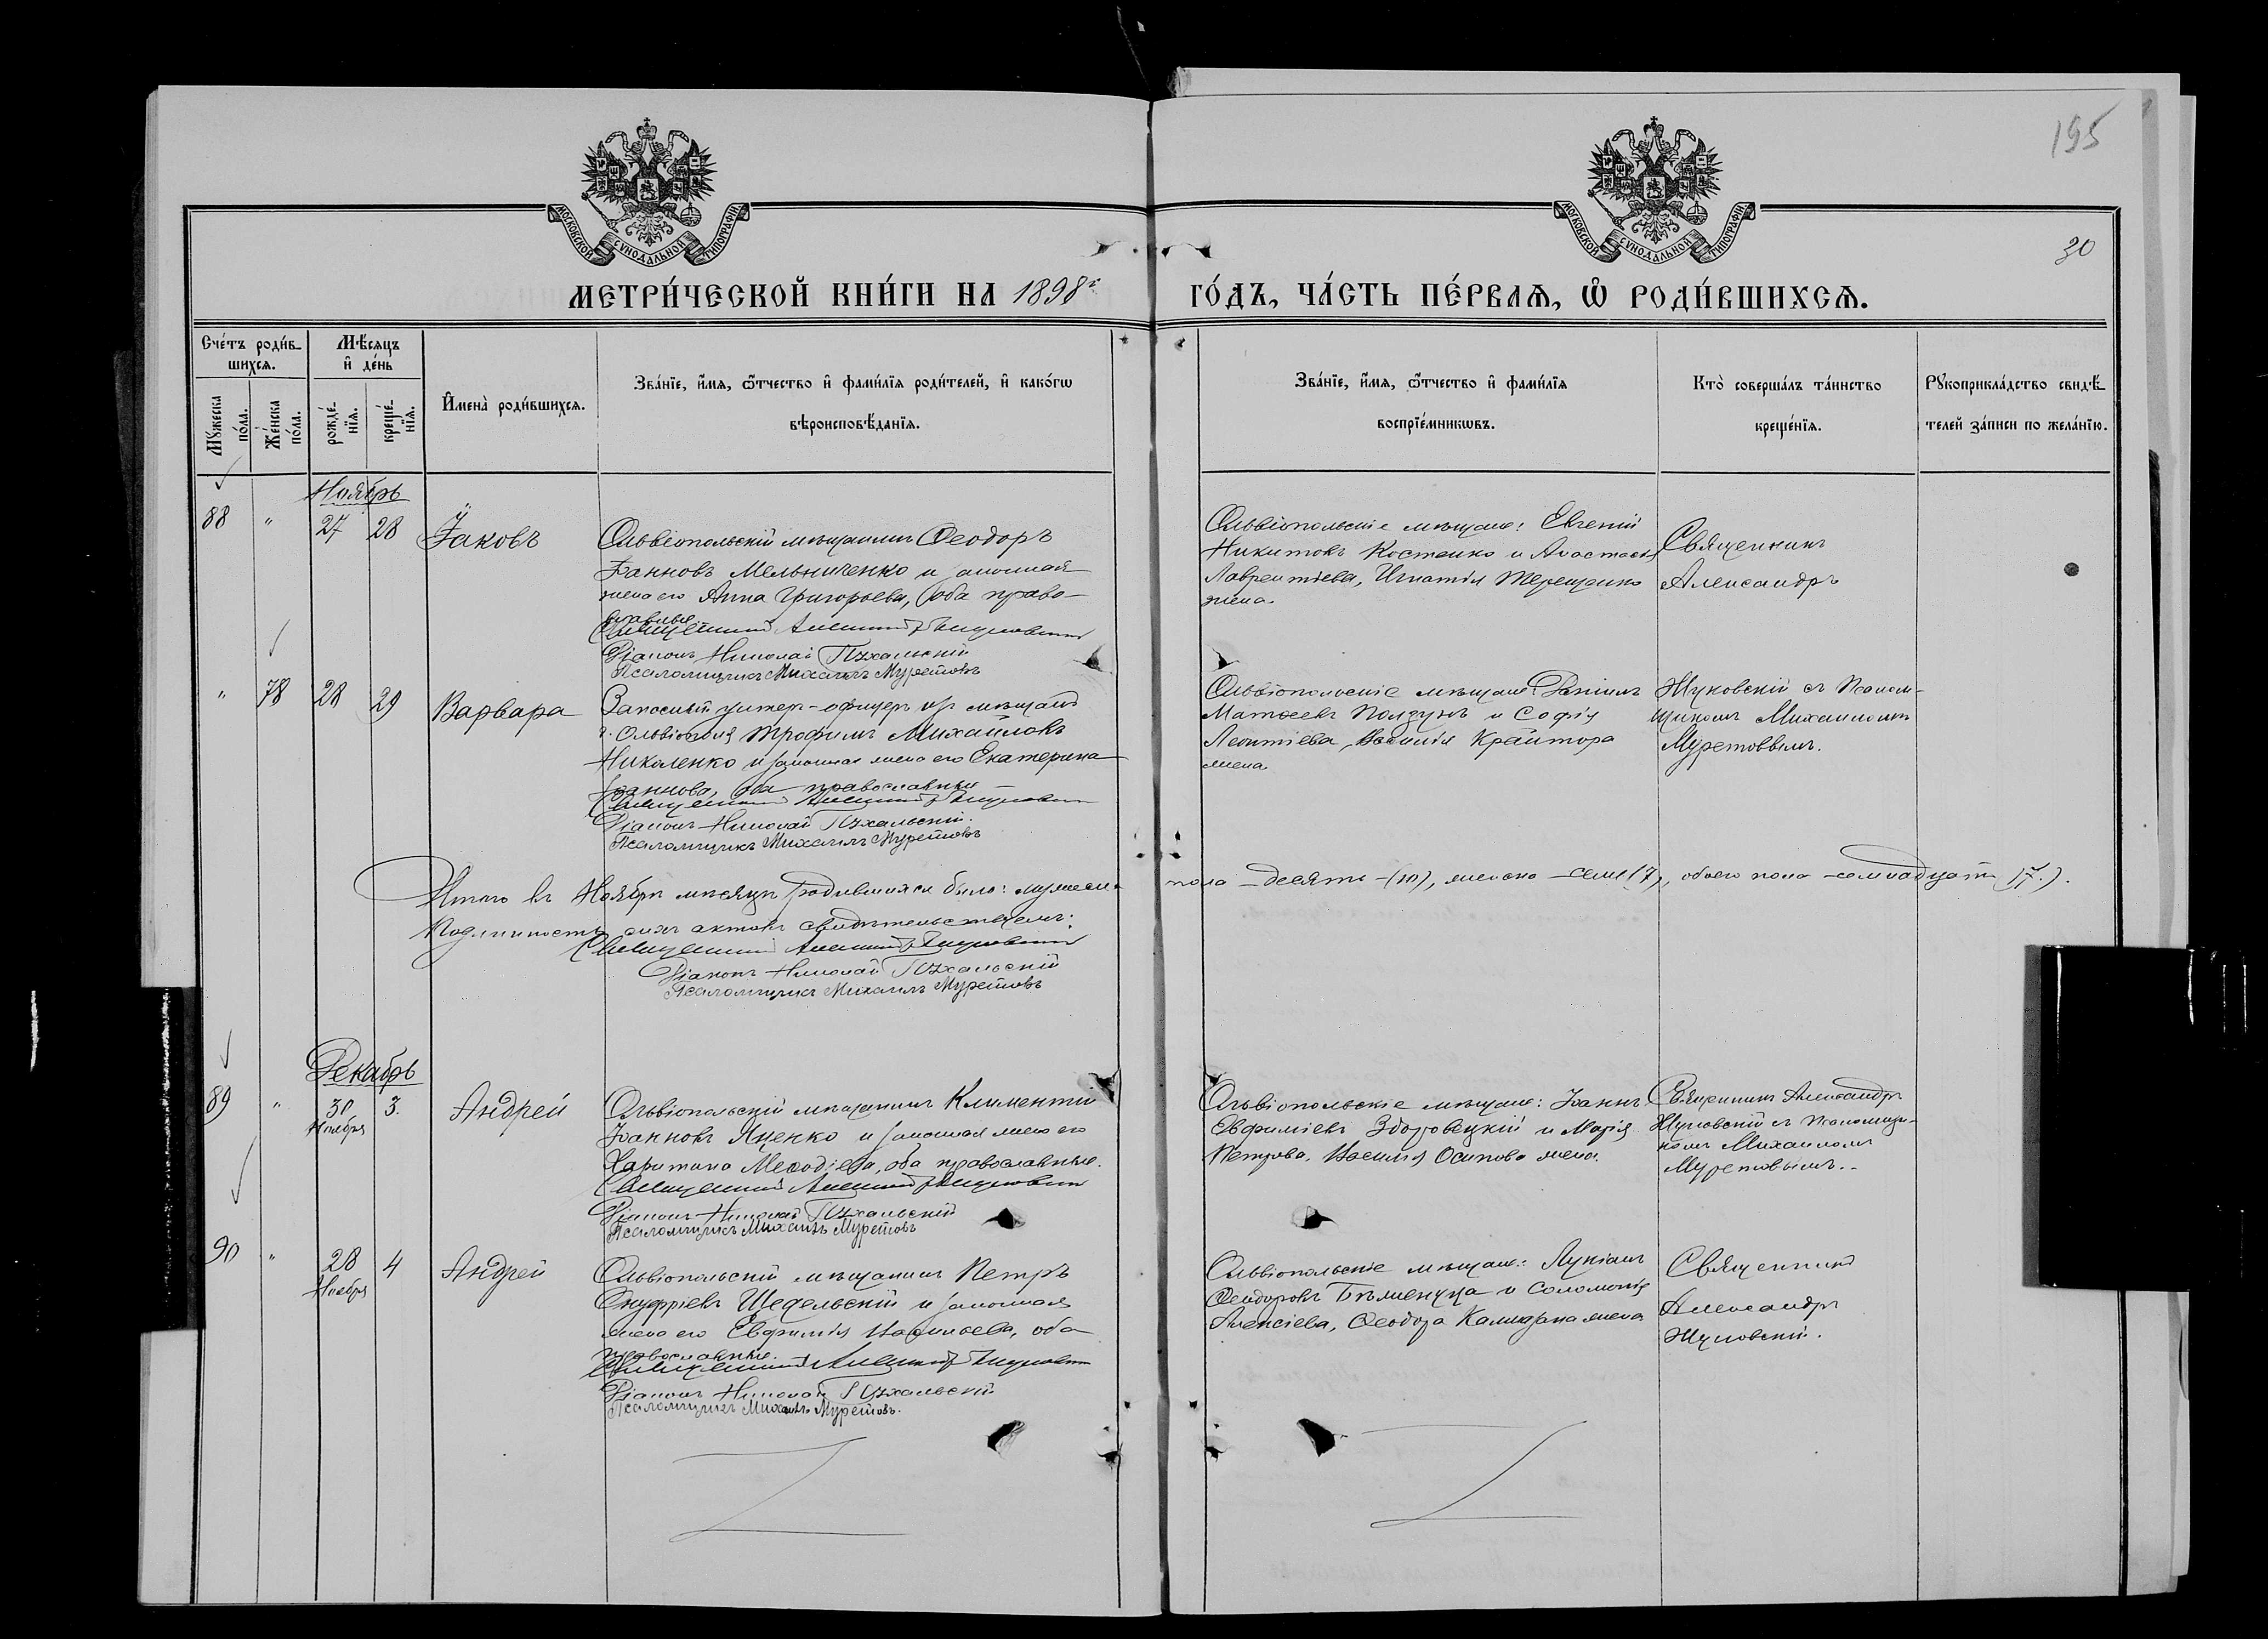 195
30
МОСКОВСКОЙ СѴНОДАЛЬНОЙ ТИПОГРАФІИ
МОСКОВСКОЙ СѴНОДАЛЬНОЙ ТИПОГРАФІИ
МЕТРИ́ЧЕСКОЙ КНИ́ГИ НА 1898 г
ГО́ДЪ, ЧА́СТЬ ПЕ́РВАѦ, Ѽ РОДИ́ВШИХСѦ.
Сче́тъ роди́в-
шихсѧ.
Мѣ́сѧцъ
и҆ де́нь
Мꙋ́жеска
по́ла.
Же́нска
по́ла.
рожде́-
нїѧ.
креще́-
нїѧ.
И҆мена̀ роди́вшихсѧ.
Зва́нїе, и҆́мѧ, ѻ҆́тчество и҆ фами́лїѧ роди́телей, и҆ како́гѡ
вѣроисповѣ́данїѧ.
Зва́нїе, и҆́мѧ, ѻ҆́тчество и҆ фами́лїѧ
воспрїе́мникѡвъ.
Кто̀ соверша́лъ та́инство
креще́нїѧ.
Рꙋкоприкла́дство свидѣ́-
телей за́писи по жела́нїю.
Ноябрь
88 " 27 28 Іаковъ
Ольвіопольскій мѣщанинъ Ѳеодоръ
Іоанновъ Мельниченко и законная
жена его Анна Григорьева, оба право-
славные.
Священникъ Александръ Жуковскій
Діаконъ Николай Пухальскій
Псаломщикъ Михаилъ Муретовъ
Ольвіопольскіе мѣщане: Евгеній
Никитовъ Костенко и Анастасія
Лаврентіева, Игнатія Терещенко
жена.
Священникъ
Александръ
" 78 28 29 Варвара
Запасный унтеръ-офицеръ изъ мѣщанъ
г. Ольвіополя Трофимъ Михайловъ
Николенко и законная жена его Екатерина
Іоаннова, оба православные
Священникъ Александръ Жуковскій
Діаконъ Николай Пухальскій.
Псаломщикъ Михаилъ Муретовъ
Ольвіопольскіе мѣщане: Даніилъ
Матѳеевъ Ползунъ и Софія
Леонтіева, Василія Крайтора
жена
Жуковскій съ Псалом-
щикомъ Михаиломъ
Муретовымъ.
Итого въ Ноябрѣ мѣсяцѣ родившихся было: мужеска пола – десять – (10), женска – семь (7), обоего пола – семнадцать (17.).
Подлинность сихъ актовъ свидѣтельствуемъ:
Священникъ Александръ Жуковскій
Діаконъ Николай Пухальскій
Псаломщикъ Михаилъ Муретовъ
Декабрь
89 " 30 Ноября 3. Андрей
Ольвіопольскій мѣщанинъ Климентій
Іоанновъ Яценко и законная жена его
Харитина Меѳодіева, оба православные.
Священникъ Александръ Жуковскій
Діаконъ Николай Пухальскій
Псаломщикъ Михаилъ Муретовъ
Ольвіопольскіе мѣщане: Іоаннъ
Евфиміевъ Здотовецкій и Марія
Петрова, Василія Осипова жена.
Священникъ Александръ
Жуковскій съ Псаломщи-
комъ Михаиломъ
Муретовымъ.
90 " 28 Ноября 4 Андрей
Ольвіопольскій мѣщанинъ Петръ
Онуфріевъ Шедельскій и законная
жена его Евфимія Васильева, оба
православные.
Священникъ Александръ Жуковскій
Діаконъ Николай Пухальскій
Псаломщикъ Михаилъ Муретовъ.
Ольвіопольскіе мѣщане: Лукіанъ
Ѳеодоровъ и Соломонія
Алексіева, Ѳеодора жена
Священникъ
Александръ
Жуковскій.